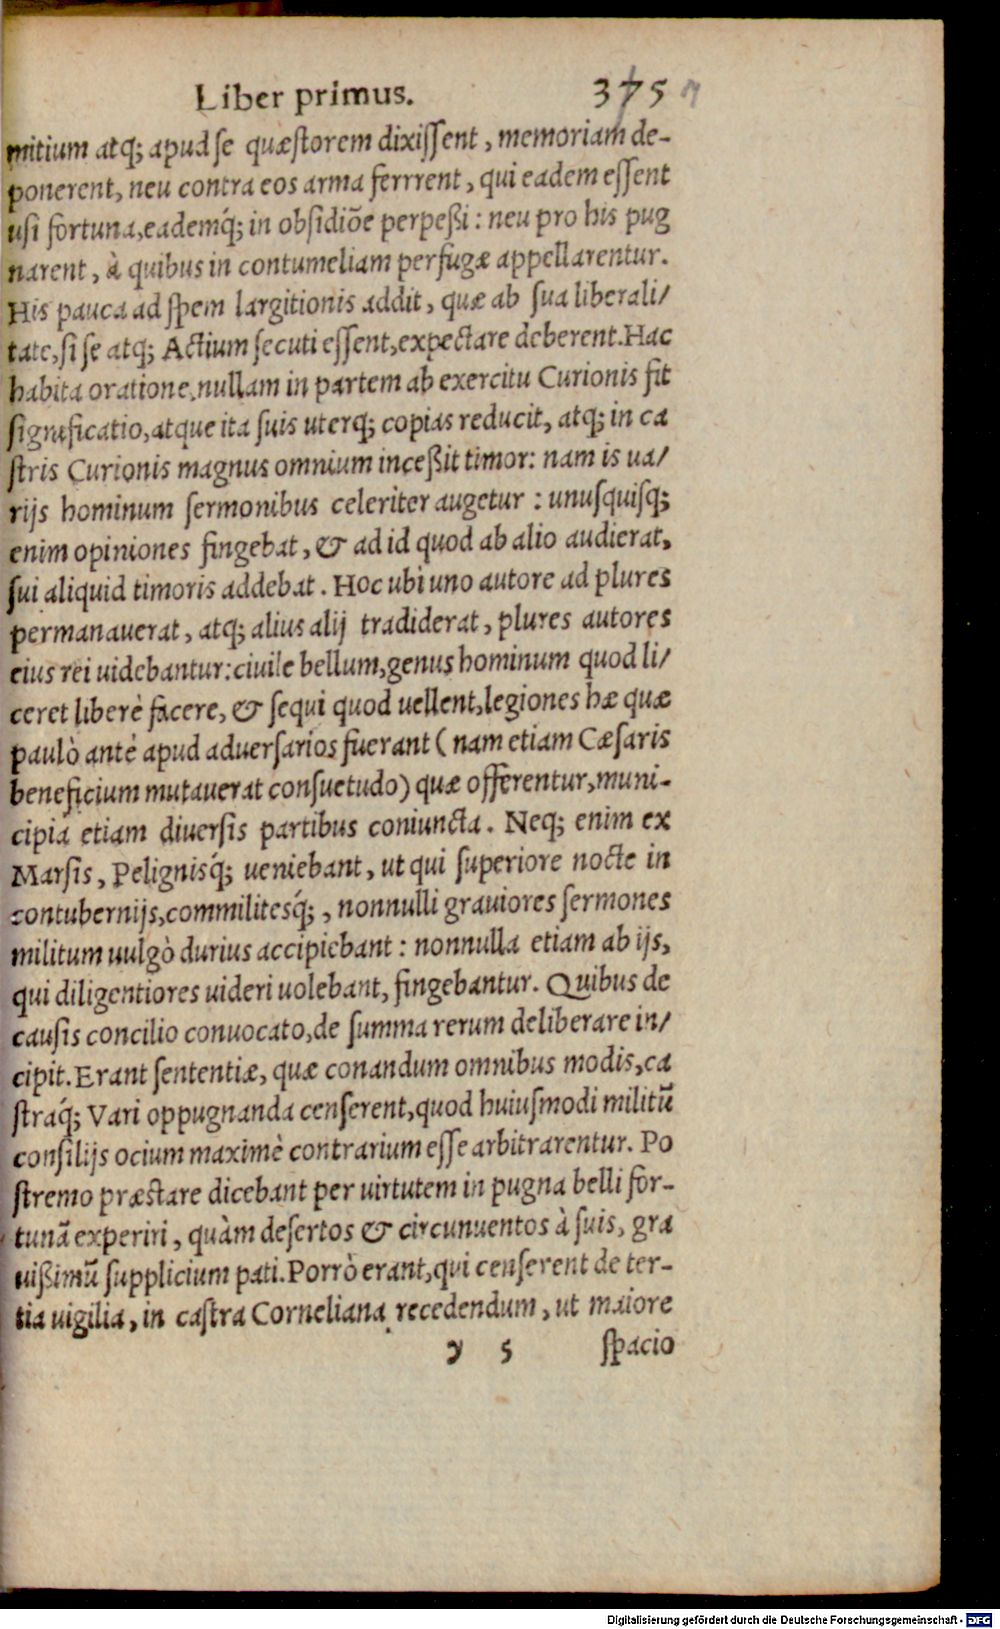 Liber primus. 375
mitium atq; apud se quæstorem dixissent, memoriam de-
ponerent, neu contra eos arma ferrrent, qui eadem essent
usi fortuna, eademq́; in obsidiōe perpeßi: neu pro his pug
narent, à quibus in contumeliam perfugæ appellarentur.
His pauca ad spem largitionis addit, quæ ab sua liberali/
tate, si se atq; Actium secuti essent, expectare deberent. Hac
habita oratione, nullam in partem ab exercitu Curionis fit
significatio, atque ita suis uterq; copias reducit, atq; in ca
stris Curionis magnus omnium inceßit timor: nam is ua/
rijs hominum sermonibus celeriter augetur: unusquisq;
enim opiniones fingebat, & ad id quod ab alio audierat,
sui aliquid timoris addebat. Hoc ubi uno autore ad plures
permanauerat, atq; alius alij tradiderat, plures autores
eius rei uidebantur: ciuile bellum, genus hominum quod li/
ceret liberè facere, & sequi quod uellent, legiones hæ quæ
paulò antè apud aduersarios fuerant (nam etiam Cæsaris
beneficium mutauerat consuetudo) quæ offerentur, muni-
cipia etiam diuersis partibus coniuncta. Neq; enim ex
Marsis, Pelignisq́; ueniebant, ut qui superiore nocte in
contubernijs, commilitesq́;, nonnulli grauiores sermones
militum uulgò durius accipiebant: nonnulla etiam ab ijs,
qui diligentiores uideri uolebant, fingebantur. Quibus de
causis concilio conuocato, de summa rerum deliberare in/
cipit. Erant sententiæ, quæ conandum omnibus modis, ca
straq́; Vari oppugnanda censerent, quod huiusmodi militū
consilijs ocium maximè contrarium esse arbitrarentur. Po
stremo præstare dicebant per uirtutem in pugna belli for-
tunā experiri, quàm desertos & circunuentos à suis, gra
uißimū supplicium pati. Porrò erant, qui censerent de ter-
tia uigilia, in castra Corneliana recedendum, ut maiore
y 5 spacio
Digitalisierung gefördert durch die Deutsche Forschungsgemeinschaft - DFG